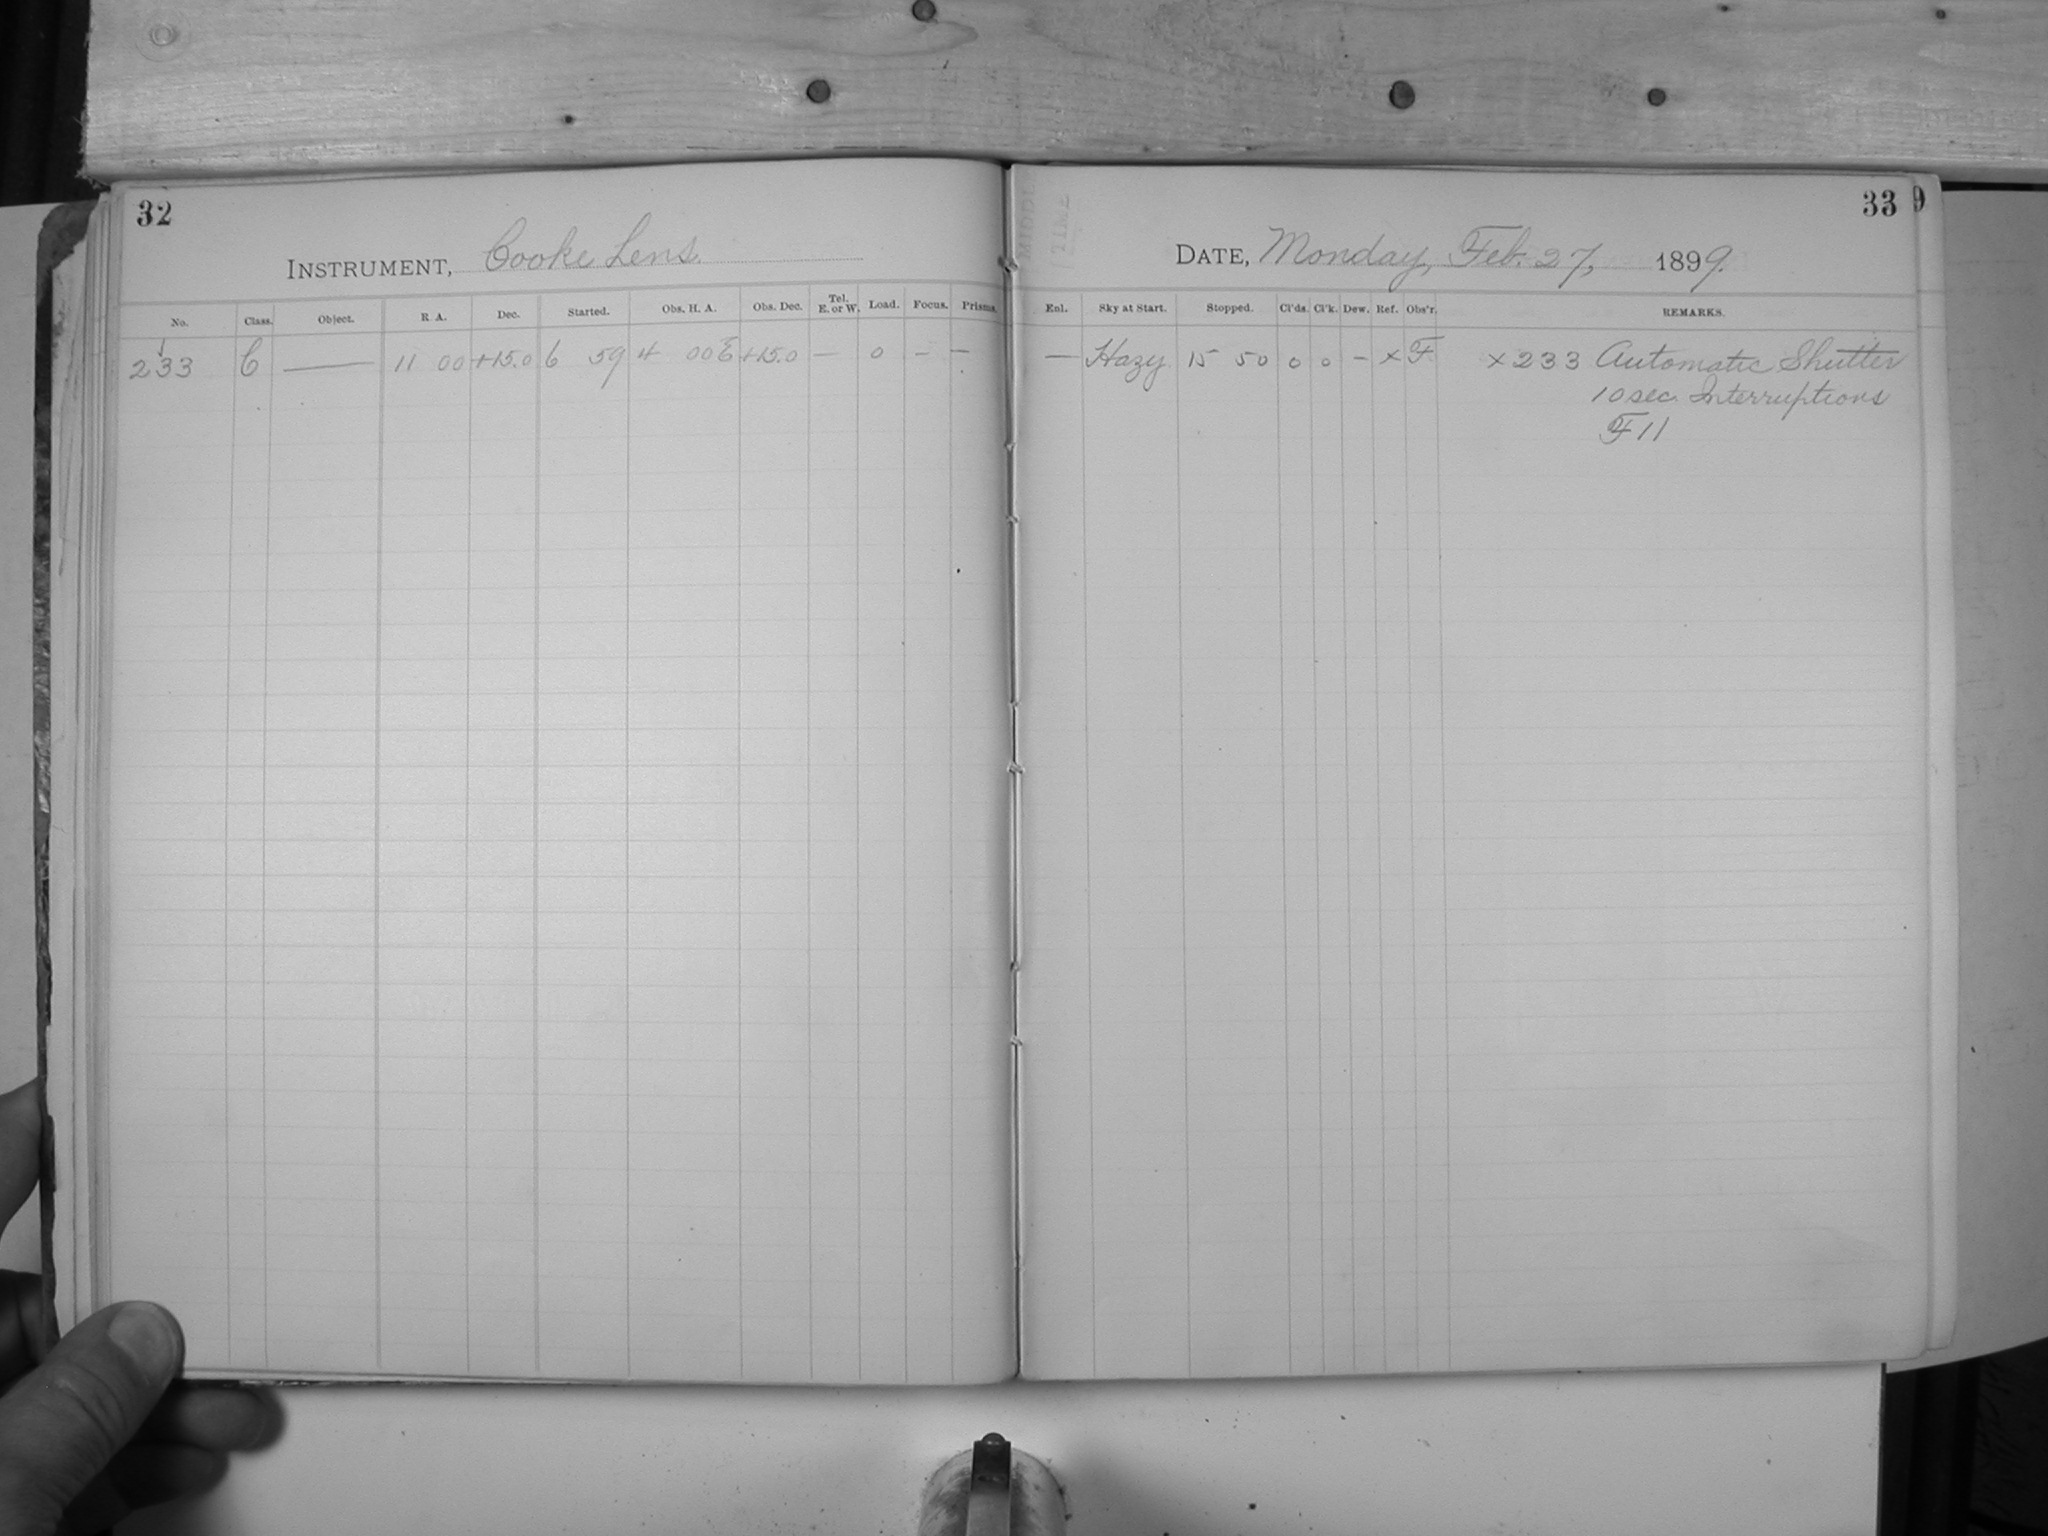 32
INSTRUMENT, Cooke Lens.
No. Class. Object. R A. Dec. Started. Obs. H. A. Obs. Dec. Tel. E. or W. Load. Focus. Prisms.
233 C — 11 00 +15.0 6 59 4 00 E +15.0 — 0 – –
33
9
DATE, Monday, Feb. 27, 1899.
Enl. Sky at Start. Stopped. Cl'ds. Cl'k. Dew. Ref. Obs'r. REMARKS.
— Hazy 15 50 0 0 – × F × 233 Automatic Shutter
10 sec. Interruptions
F 11